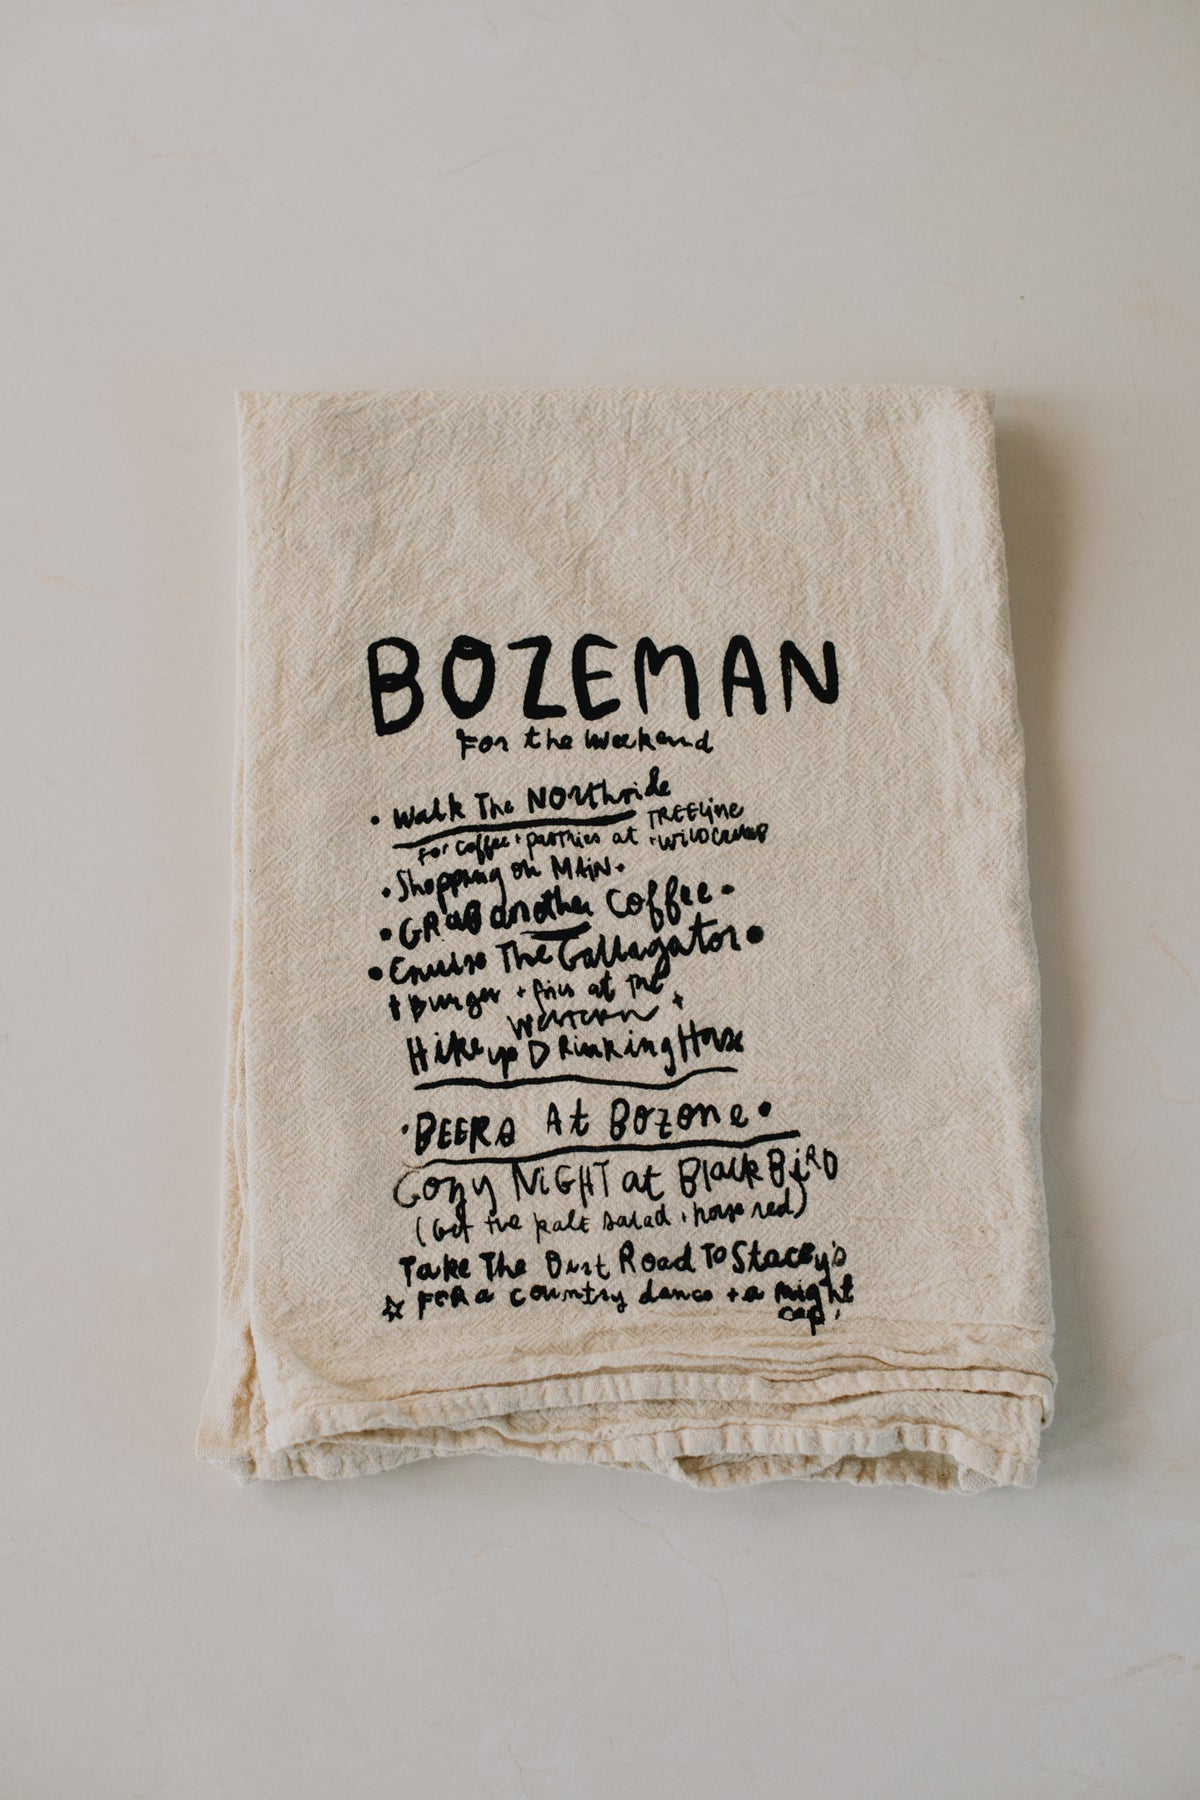 BOZEMAN
For the Weekend
• Walk The Northside
For Coffee + pastries at TREELINE
+ WILD CRUMB
• Shopping on MAIN •
• GRAB another Coffee •
• Cruise The Gallagator •
+ Burger + fries at The
Western +
Hike up Drinking Horse
• BEERS At Bozone •
Cozy NiGHT at Black BiRD
(Get the kale salad + house red)
Take The Dirt Road To Stacey's
☆ FOR a country dance + a night
cap!